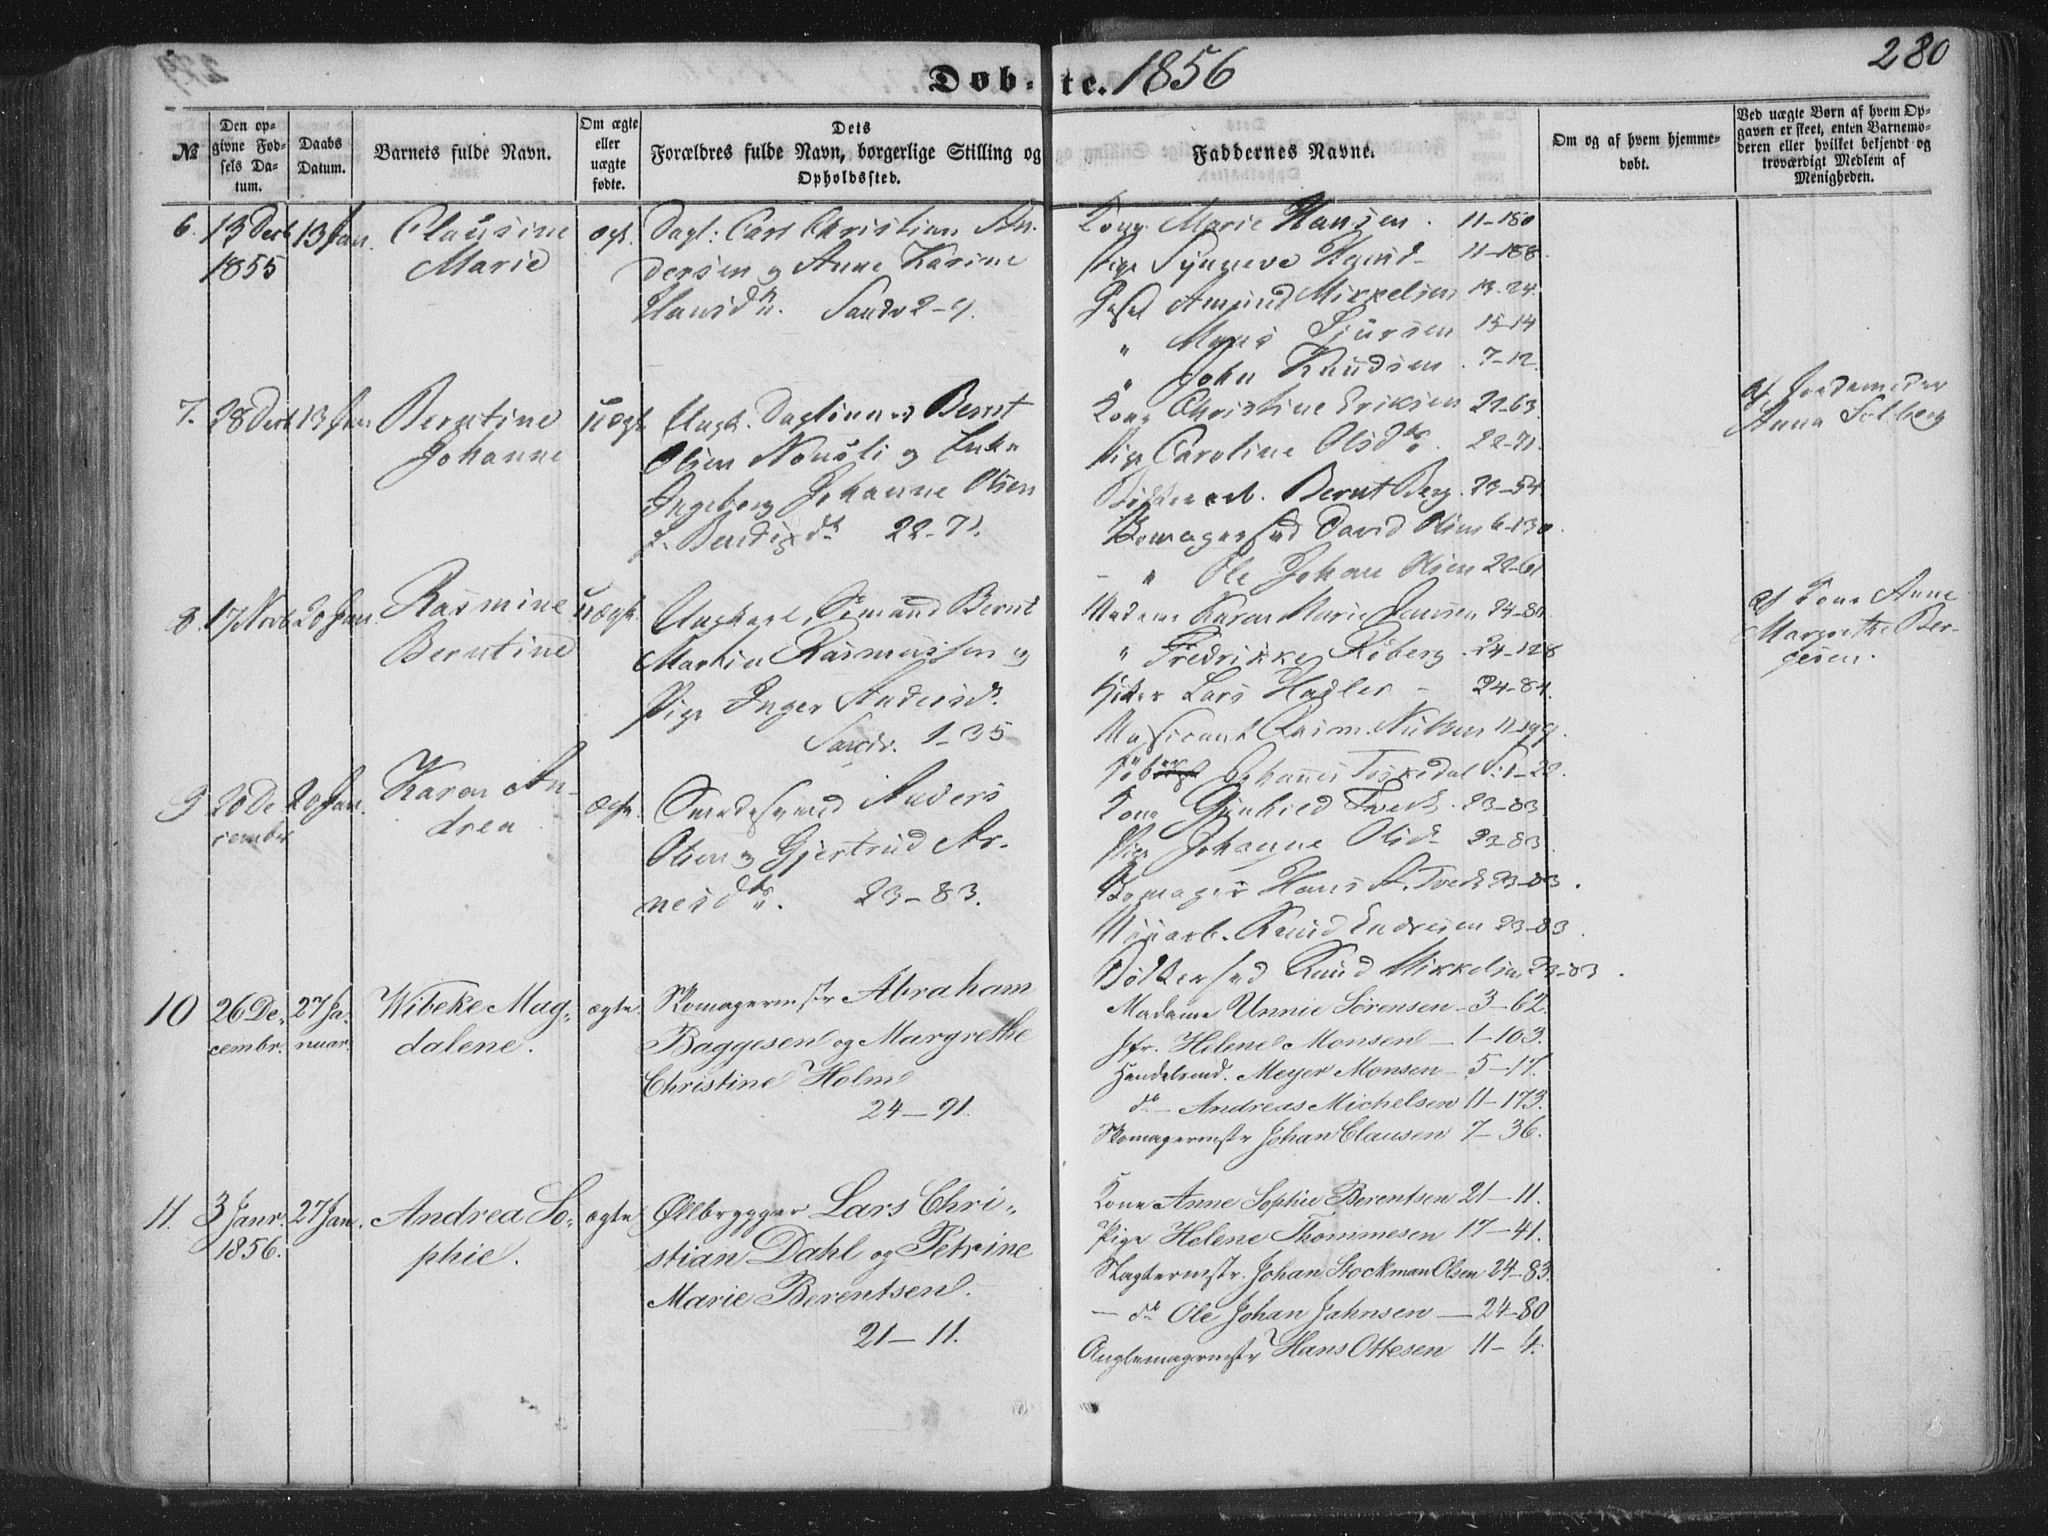 280
Døbte. 1856
№
Den opgivne Fødsels Datum.
Daabs Datum.
Barnets fulde Navn.
Om ægte eller uægte fødte.
Dets Forældres fulde Navn, borgerlige Stilling og Opholdssted.
Faddernes Navne.
Om og af hvem hjemmedøbt.
Ved uægte Børn af hvem Opgaven er skeet, enten Barnemoderen eller hvilket bekjendt og troværdigt Medlem af Menigheden.
6. 13 Decb 13 Jan. Clausine
1855 Marie
Dagl: Carl Christian An-
dersen og Anne Karine
Hansdr. Sandv 2-9.
Kone Marie Hansen. 11-180
Pige Synneve Knud- 11-188.
Amund Mikkelsen 13-24.
" Mons Sjursen 15-14
" John Knudsen. 7-12.
7. 28 Decb 13 Jan Berntine
Johanne
uægt
Ungk. Bernt
Olsen og Enke
Ingeborg Johanne Olsen
f. Bendixdr 22-71.
Kone Christine Eriksen 22-63.
Pige Caroline Olsdtr. 22-71.
Bernt Berg. 23-54.
David Olsen 6-130.
- " Ole Johan Olsen 22-61
af Jordemoder
Anna Solberg
8. 17 Novb 20 Jan. Rasmine
Berntine
uægt.
Ungkarl Bernt
Martin Rasmussen og
Pige Inger Andersdr.
Sandv. 1-35
Madame Karen Marie Jansen 24-80.
" Fredrikke Kiberg. 24-128
Lars Hadler - 24-84.
11-199.
Johannes 1-22.
af Kone Anne
Margrethe Ber-
gesen.
9 20 De- 20 Jan. Karen An-
cember drea
ægte.
Smedesvend Anders
Olsen og Gjertrud Ar-
nesdtr. 23-83.
Kone Gunhild Tvedt. 23-83
Pige Johanne Olsd- 23-83.
Skomager Hans A. Tvedt 23-83.
Murarb. Knud Endresen 23-83.
Bødkersvd Knud Mikkelsen 23-83.
10 26 De- 27 Ja- Wibeke Mag- ægte.
cembr. nuar. dalene.
Skomagermstr Abraham
Baggesen og Margrethe
Christine Holm
24-91.
Madame Unnie Sørensen - 3-62.
Jfr. Helene Monsen - 1-103.
Handelsmd. Meyer Monsen - 5-17.
do - Andreas Michelsen 11-173.
Skomagermstr Johan Clausen 7-36.
11. 3 Janr. 27 Jan. Andrea So- ægte
1856. phie.
Ølbrygger Lars Chri-
stian Dahl og Petrine
Marie Berentsen.
21-11.
Kone Anne Sophie Berentsen 21-11.
Pige Helene Thommesen 17-41.
Slagtermstr. Johan Stockman Olsen 24-83.
- do Ole Johan Jahnsen - 24-80
Hans Ottesen 11-4.